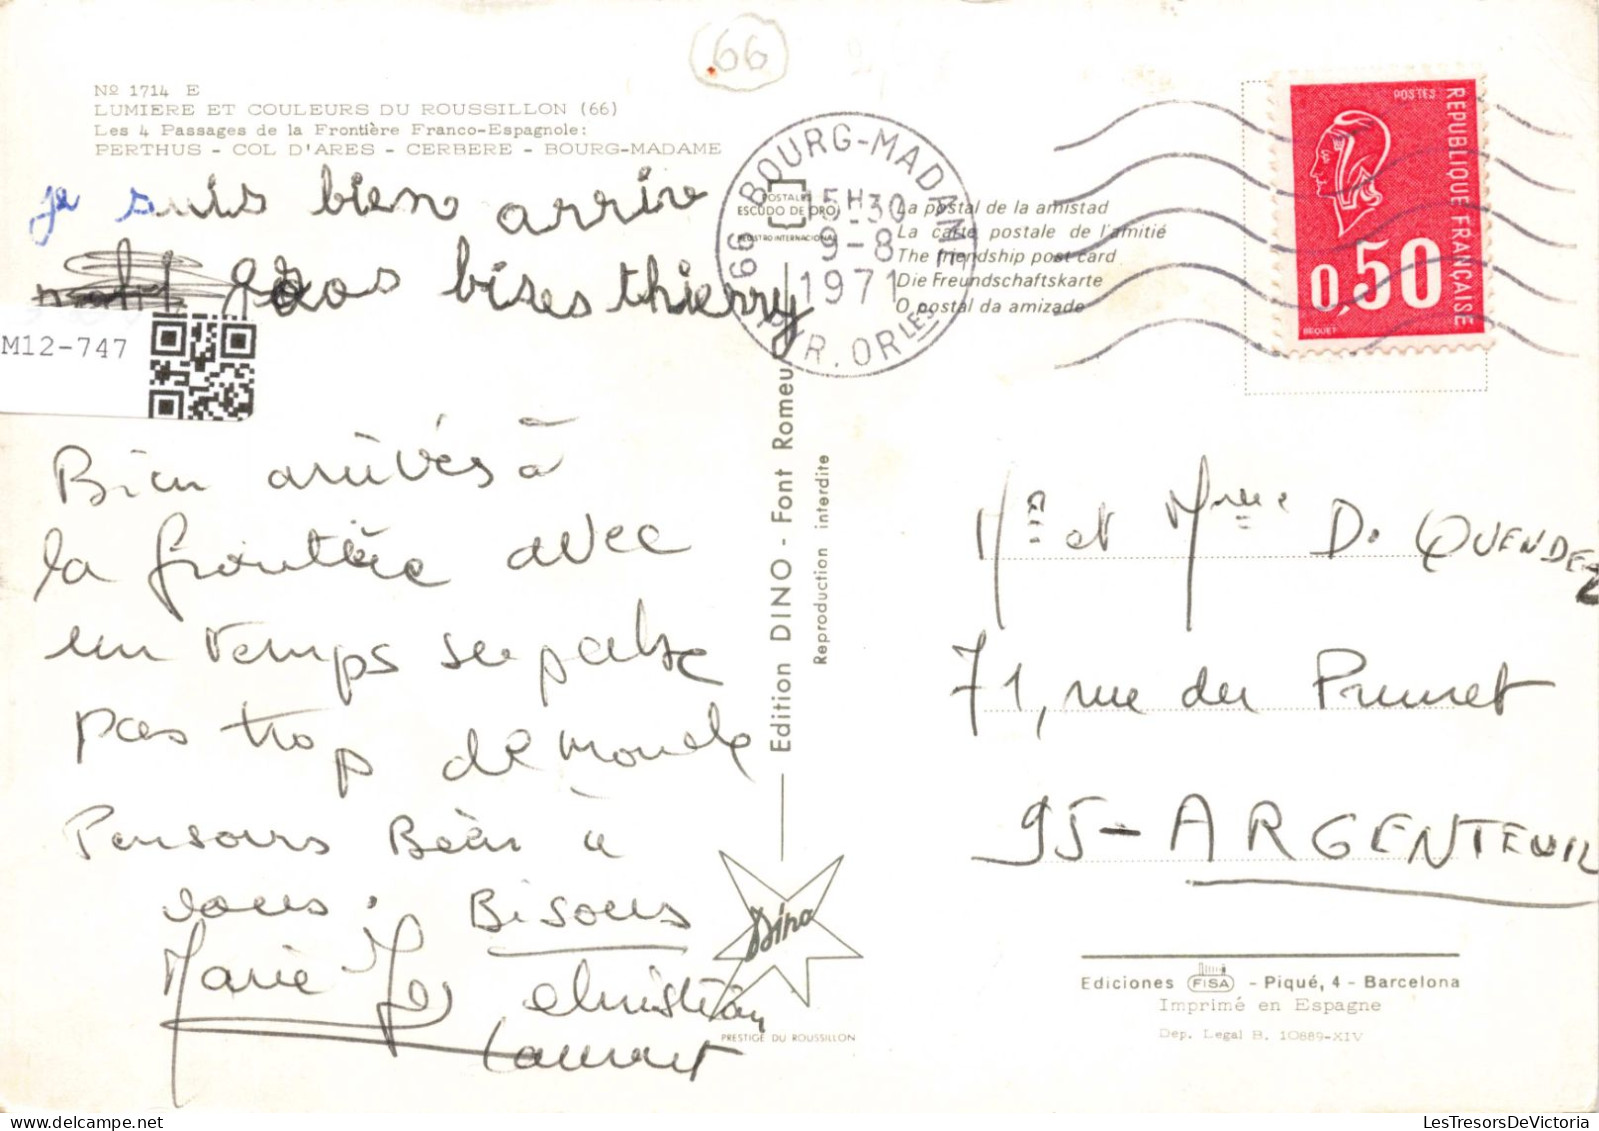 66
Nº 1714 E
LUMIERE ET COULEURS DU ROUSSILLON (66)
Les 4 Passages de la Frontière Franco-Espagnole:
PERTHUS - COL D'ARES - CERBERE - BOURG-MADAME
je suis bien arrive
gros bises thierry
M12-747
Bien arrivés à
la frontière avec
un temps superbe
pas trop de monde
Pensons Bien à
vous. Bisous
Marie Jo christian
Laurent
66 BOURG-MADAME
15H30
9-8
1971
PYR. ORLES
POSTALES
ESCUDO DE ORO
REGISTRO INTERNACIONAL
La postal de la amistad
La carte postale de l'amitié
The friendship post card
Die Freundschaftskarte
O postal da amizade
Edition DINO - Font Romeu
Reproduction interdite
Dino
PRESTIGE DU ROUSSILLON
POSTES
REPUBLIQUE FRANÇAISE
0,50
BEQUET
Mr et Mme D. QUENDEZ
71, rue du Prunet
95 - ARGENTEUIL
Ediciones FISA - Piqué, 4 - Barcelona
Imprimé en Espagne
Dep. Legal B. 10889-XIV
LesTresorsDeVictoria.com